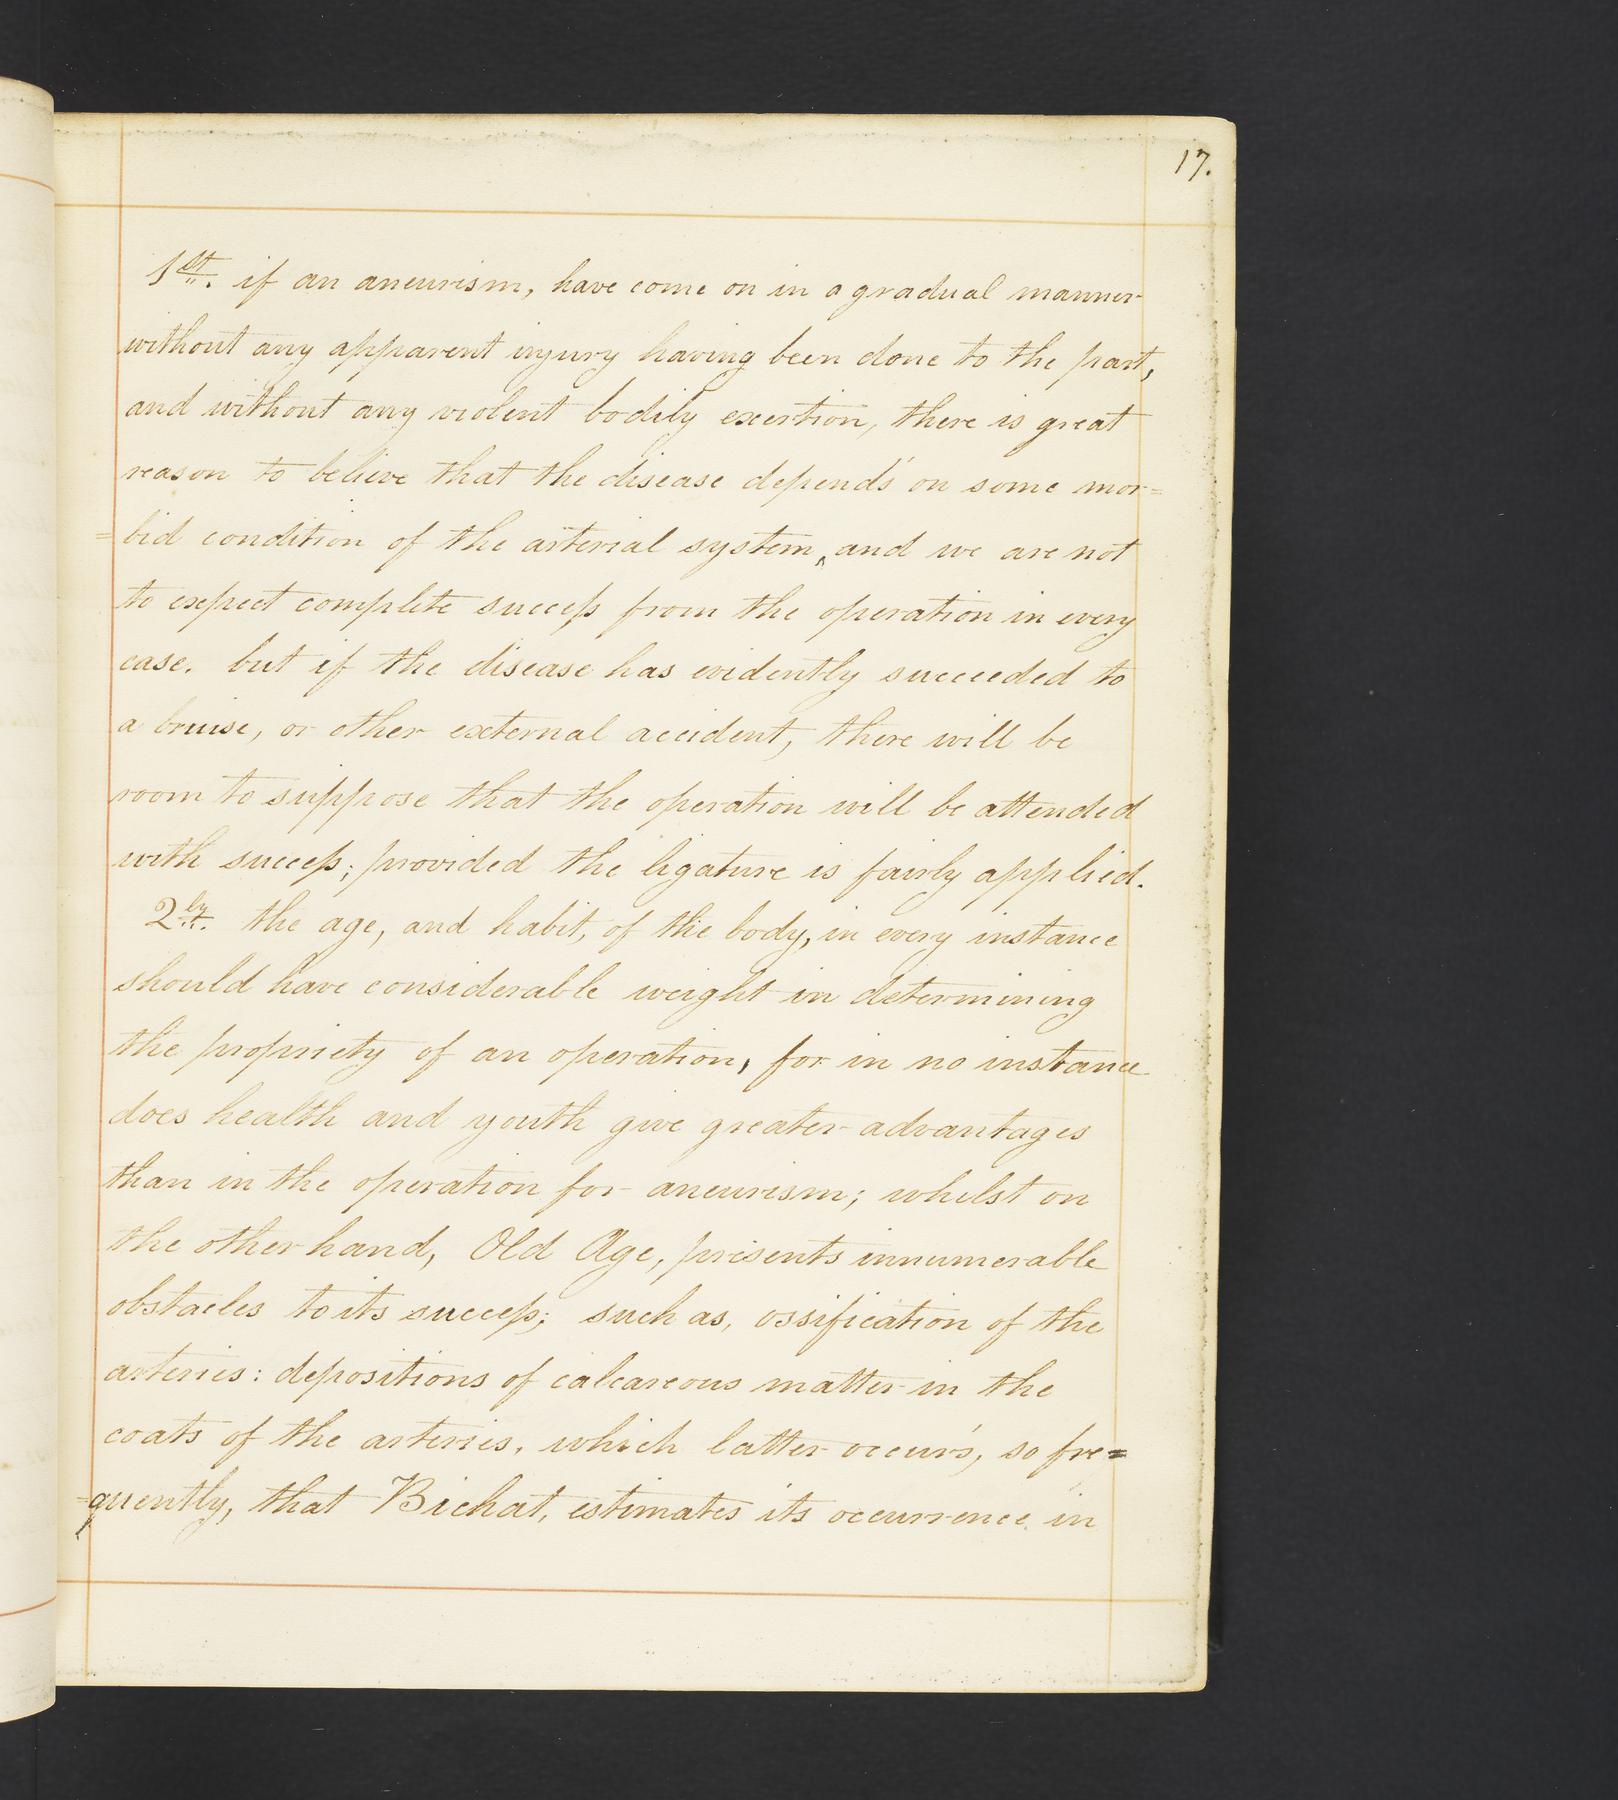 17.
1st. if an aneurism, have come on in a gradual manner
without any apparent injury having been done to the part,
and without any violent bodily exertion, there is great
reason to believe that the disease depend's on some mor=
=bid condition of the arterial system, and we are not
to expect complete success from the operation in every
case. but if the disease has evidently succeeded to
a bruise, or other external accident, there will be
room to suppose that the operation will be attended
with success; provided the ligature is fairly applied.
2ly. the age, and habit, of the body, in every instance
should have considerable weight in determining
the propriety of an operation, for in no instance
does health and youth give greater advantages
than in the operation for aneurism; whilst on
the other hand, Old Age, presents innumerable
obstacles to its success; such as, ossification of the
arteries: depositions of calcareous matter in the
coats of the arteries, which latter occur's, so fre=
=quently, that Bichat, estimates its occurrence in